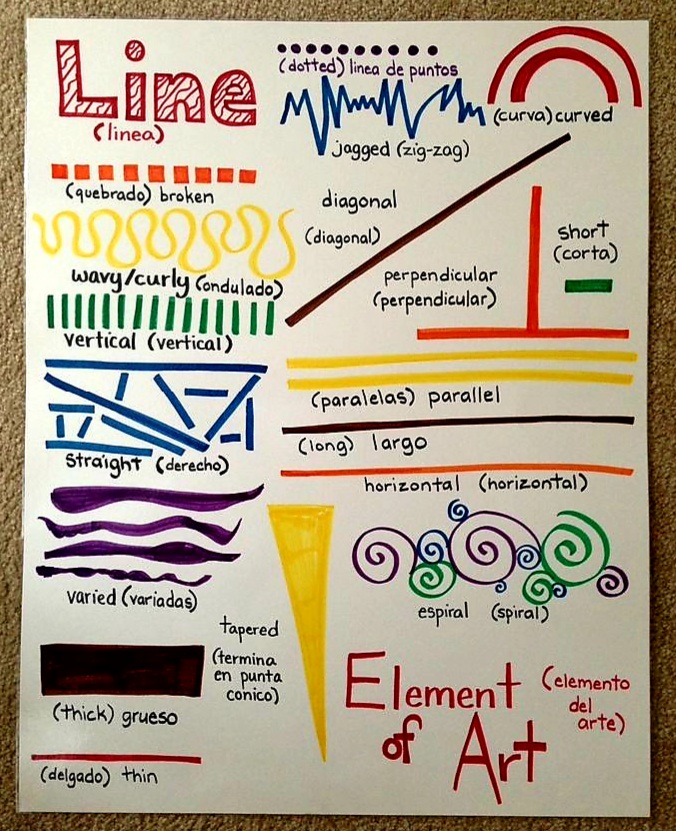 Line
(linea)
(dotted) linea de puntos
(curva) curved
jagged (zig-zag)
(quebrado) broken
diagonal
(diagonal)
short
(corta)
wavy/curly (ondulado)
perpendicular
(perpendicular)
vertical (vertical)
(paralelas) parallel
(long) largo
straight (derecho)
horizontal (horizontal)
varied (variadas)
espiral (spiral)
tapered
(termina
en punta
conico)
(thick) grueso
(delgado) thin
Element
of Art
(elemento
del
arte)